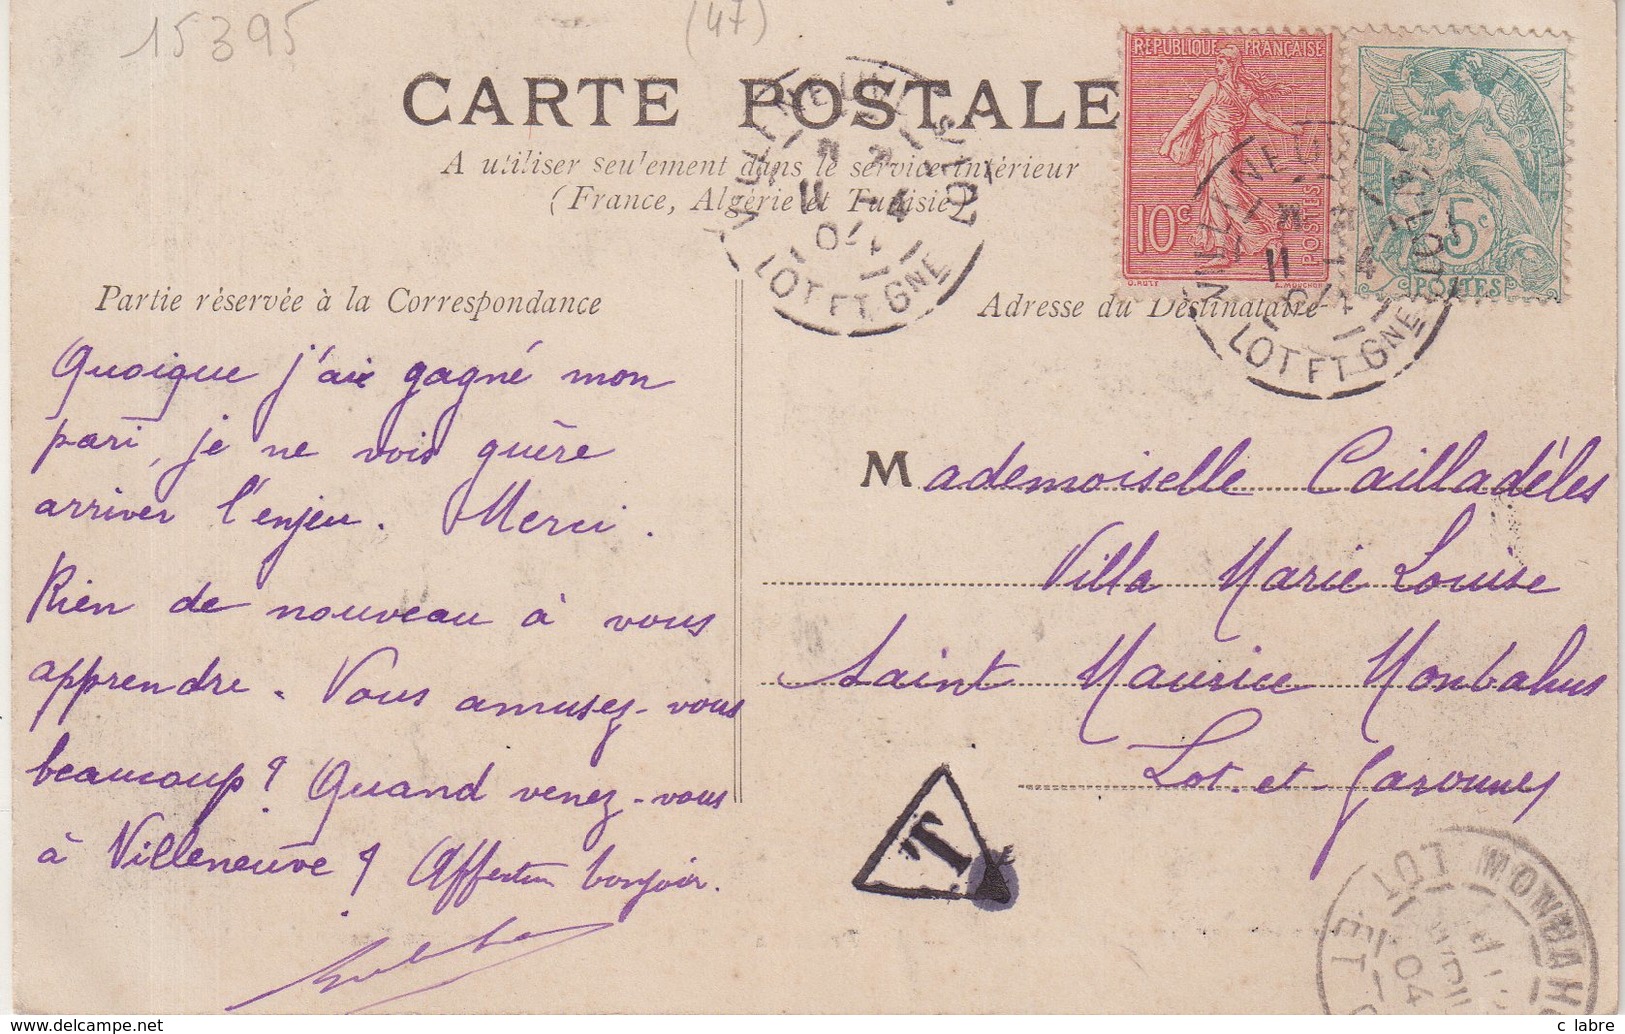 15395
(47)
CARTE POSTALE
A utiliser seulement dans le service intérieur
(France, Algérie et Tunisie)
RÉPUBLIQUE FRANÇAISE
10c
POSTES
O. ROTY
L. MOUCHON
5c
POSTES
LOT ET GNE
LOT ET GNE
Partie réservée à la Correspondance
Quoique j'aie gagné mon
pari, je ne vois guère
arriver l'enjeu. Merci.
Rien de nouveau à vous
apprendre. Vous amusez-vous
beaucoup? Quand venez-vous
à Villeneuve? Affectueux bonjour.
Adresse du Destinataire
Mademoiselle Cailladèles
Villa Marie Louise
Saint Maurice Monbahus
Lot-et-Garonne
T
MONBAHUS
LOT ET
04
© labre